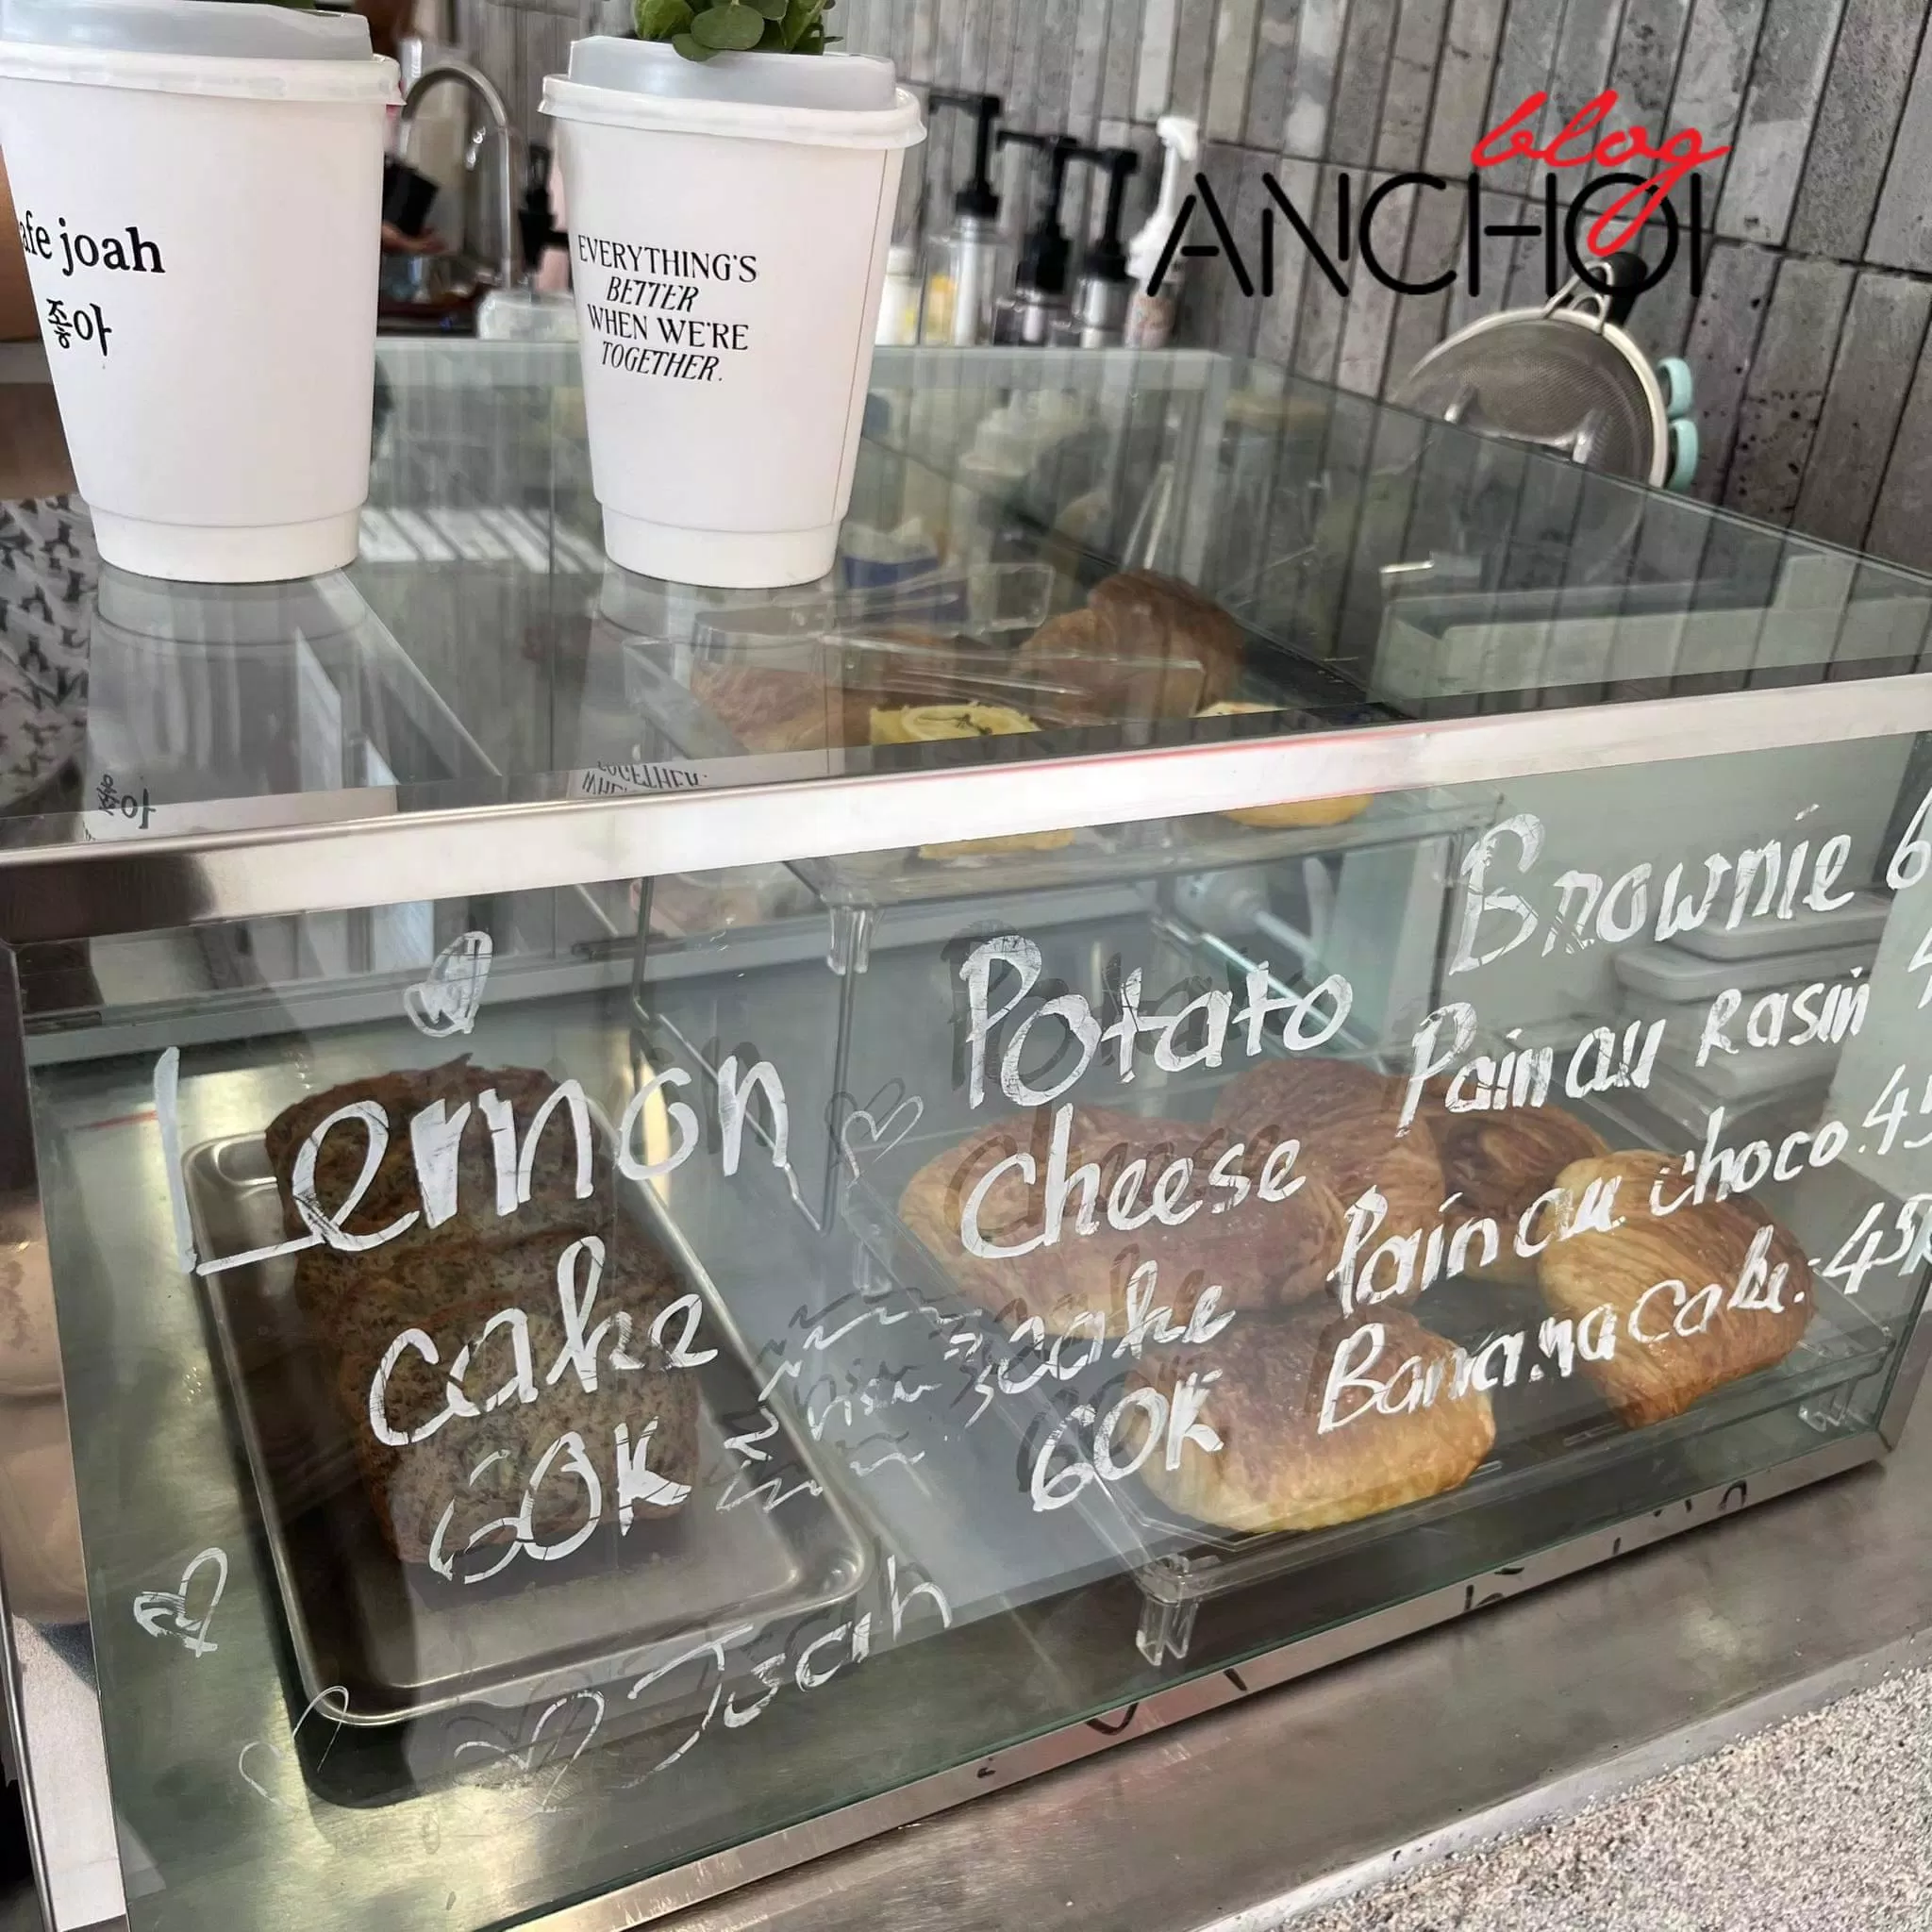 afe joah
좋아
EVERYTHING'S
BETTER
WHEN WE'RE
TOGETHER.
blog
ANCHOI
Lemon
cake
60K
Potato
cheese
cake
60K
Brownie 6
Pain au Rasin
Pain au choco. 45
Banana Cake. - 45K
Joah